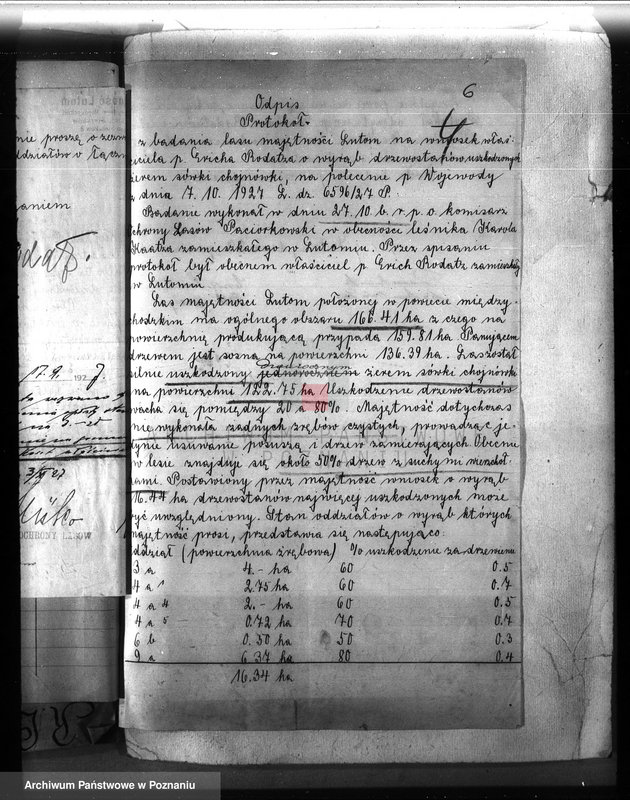 6
Odpis
Protokół.
z badania lasu majętności Lutom na wniosek właś-
ciciela p. Ericha Rodatza o wyrąb drzewostanów uszkodzonych
żerem sówki chojnówki, na polecenie p. Wojewody
z dnia 7. 10. 1927 L. dz. 6596/27 P.
Badanie wykonał w dniu 27.10. b. r. p. o. komisarz
chrony Lasów Paciorkowski w obecności leśnika Karola
Kaatza zamieszkałego w Lutomiu. Przez spisaniu
protokół był obecnem właściciel p. Erich Rodatz zamieszkały
w Lutomiu
Las majętności Lutom położonej w powiecie między-
chodzkim ma ogólnego obszaru 166.41 ha z czego na
powierzchnię produkującą przypada 159.81 ha Panującem
drzewem jest sosna na powierzchni 136.39 ha. Las został
silnie uszkodzony jednorocznem żerem sówki chojnówki
na powierzchni 122.75 ha Uszkodzenie drzewostanów
wacha się pomiędzy 20 a 80%. Majętność dotychczas
nie wykonała żadnych zrębów czystych, prowadząc je-
dynie usuwanie posuszu i drzew zamierających Obecnie
w lesie znajduje się około 50% drzew z suchymi wierzchoł-
ami. Postawiony przez majętność wniosek o wyrąb
16.44 ha drzewostanów najwięcej uszkodzonych może
być uwzględniony. Stan oddziałów o wyrąb których
majętność prosi, przedstawia się następująco:
oddział (powierzchnia zrębowa) % uszkodzenie zadrzewienie
3 a 4.- ha 60 0.5
4 a 2.75 ha 60 0.7
4 a 4 2.- ha 60 0.5
4 a 5 - 0.72 ha 70 0.7
6 b 0.50 ha 50 0.3
9 a 6 37 ha 80 0.4
16.34 ha
nie proszę o zezw
ddziałów o łączn
aniem
OCHRONY LASÓW
Archiwum Państwowe w Poznaniu